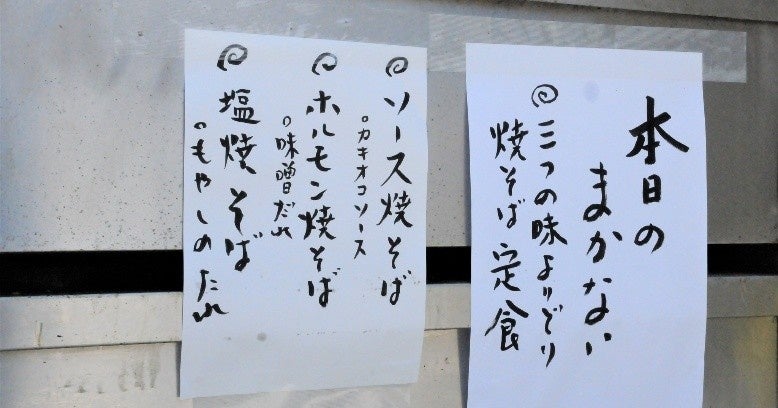 本日の
まかない
◎三つの味よりどり
焼そば定食
ソース焼そば
。カキオコソース
ホルモン焼そば
。味噌だれ
塩焼そば
。もやしのたれ